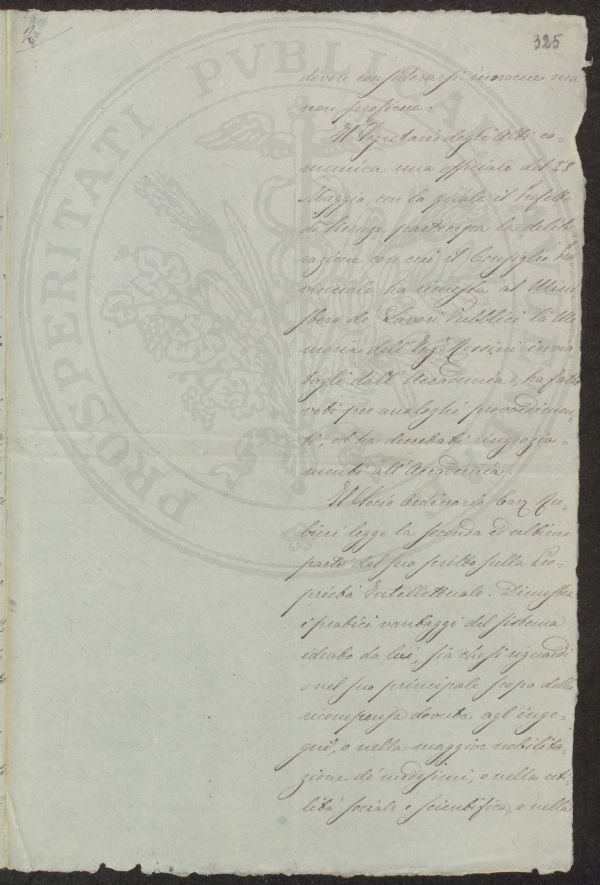 2
325
devon considerarsi innocue ma
non proficue.
Il Segretario degli Atti co-
munica una officiale del 28
Maggio, con la quale il Prefetto
di Firenze partecipa la delibe-
razione con cui il Consiglio Pro-
vinciale ha rimessa al Mini
stero de' Lavori Pubblici la Me
moria dell' Ing. invia
tagli dall' Accademia, ha fatto
voti per analoghi provvedimen-
ti, ed ha decretati ringrazia-
menti all' Accademia.
Il Socio Ordinario Cav. Ru-
bieri legge la seconda ed ultima
parte del suo scritto sulla Pro-
prietà Intellettuale. Dimostra
i pratici vantaggi del sistema
ideato da lui, sia che si riguardi
o nel suo principale scopo della
ricompensa dovuta agl' inge-
gni, o nella maggior nobilita-
zione de' medesimi, o nella uti-
lità sociale e scientifica, o nella
PROSPERITATI PUBLICAE